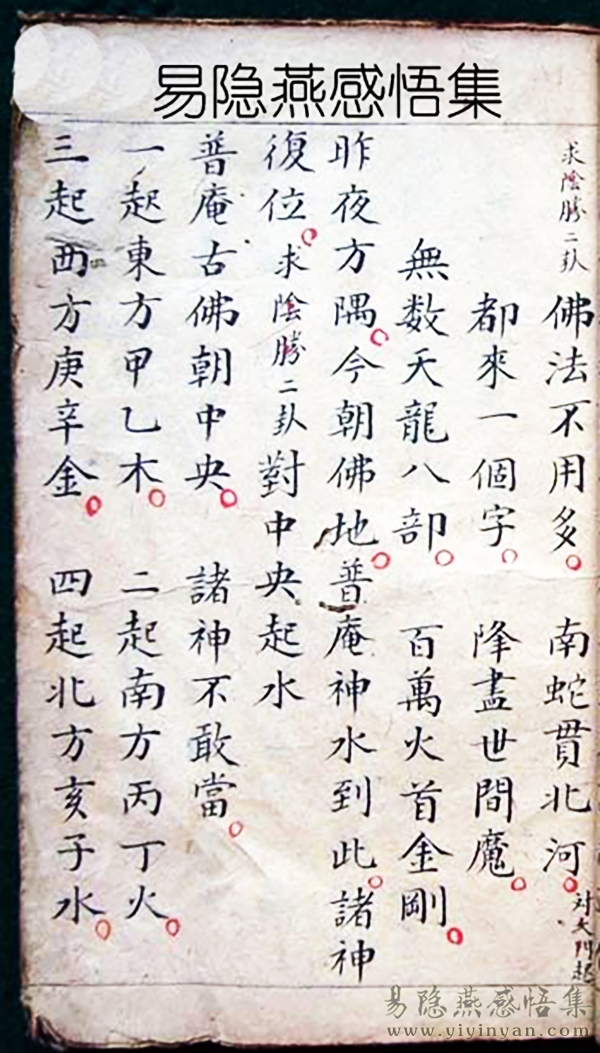 易隐燕感悟集
求陰勝二卦 佛法不用多。 南蛇貫北河。 对大門起
都來一個字。 降盡世間魔。
無数天龍八部。 百萬火首金剛。
昨夜方隅。今朝佛地。普庵神水到此。諸神
復位。求陰勝二卦 對中央起水
普庵古佛朝中央。 諸神不敢當。
一起東方甲乙木。 二起南方丙丁火。
三起西方庚辛金。 四起北方亥子水。
易隐燕感悟集
www.yiyinyan.com